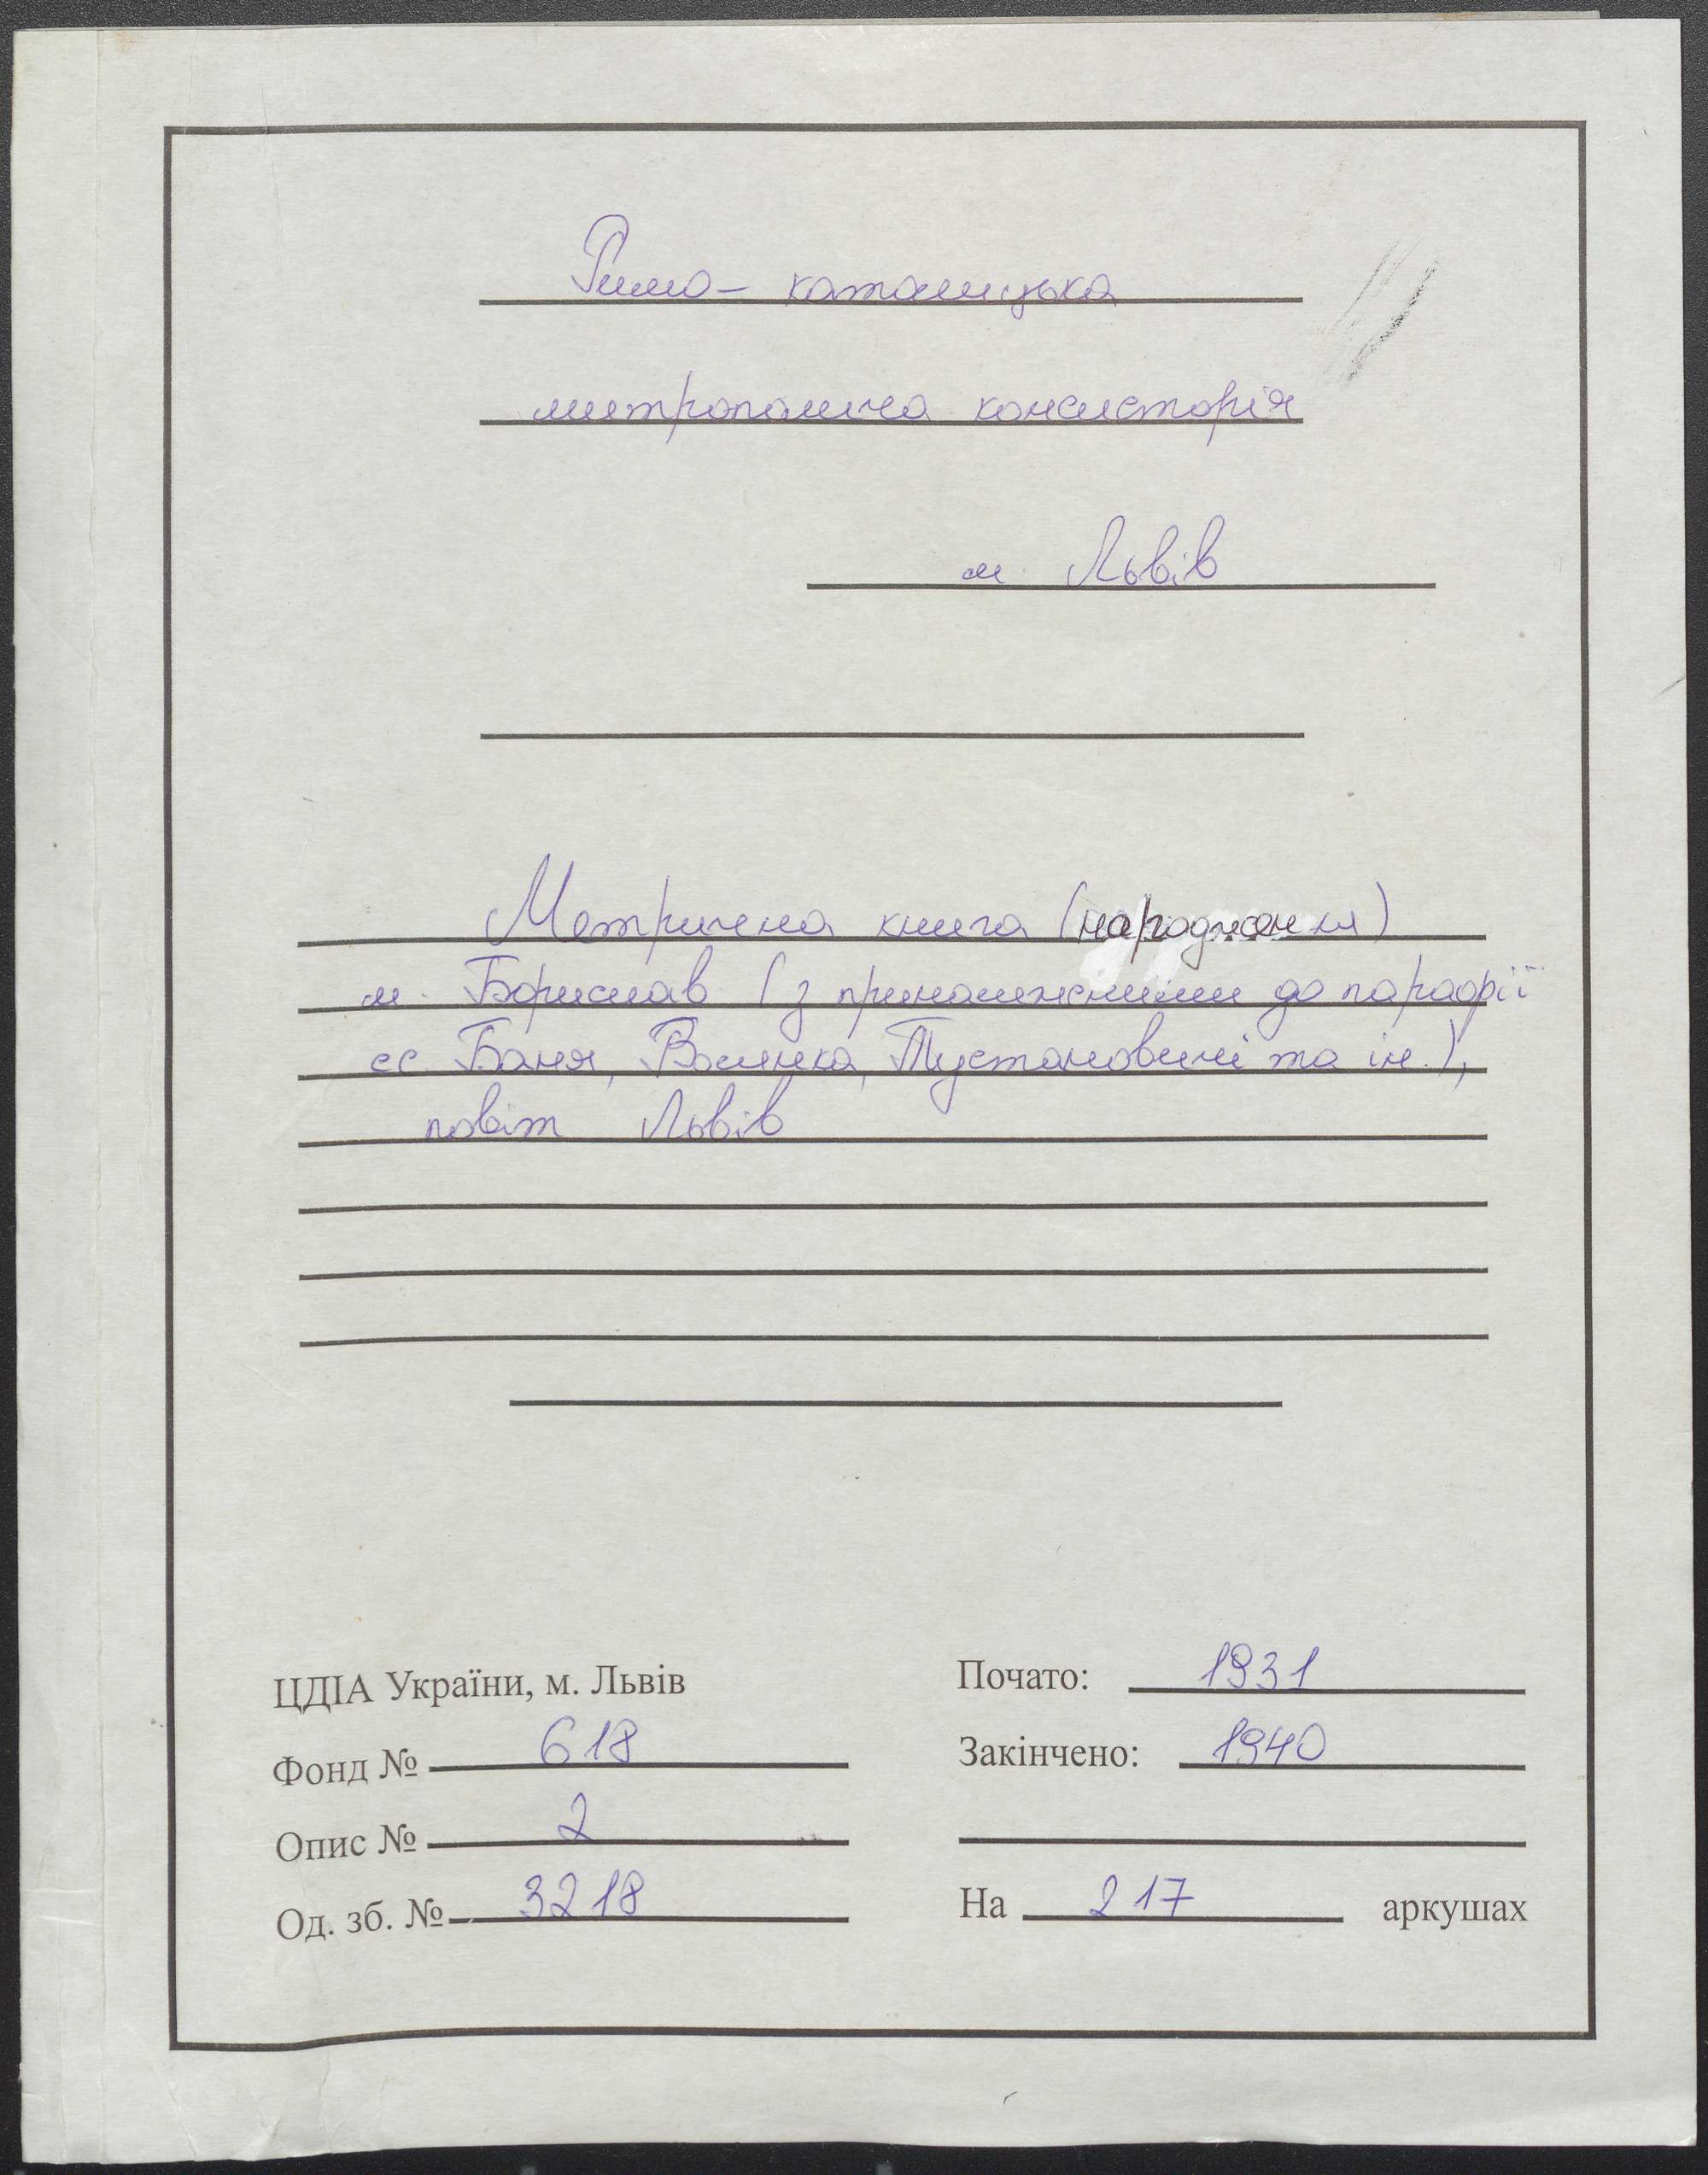 Римо - католицька
митрополича консисторія
м. Львів
Метрична книга (народження)
м. Борислав (з приналежними до парафії
сс. Баня, Волянка, Тустановичі та ін.),
повіт Львів
ЦДІА України, м. Львів
Фонд № 618
Опис № 2
Од. зб. № 3218
Почато: 1931
Закінчено: 1940
На 217 аркушах